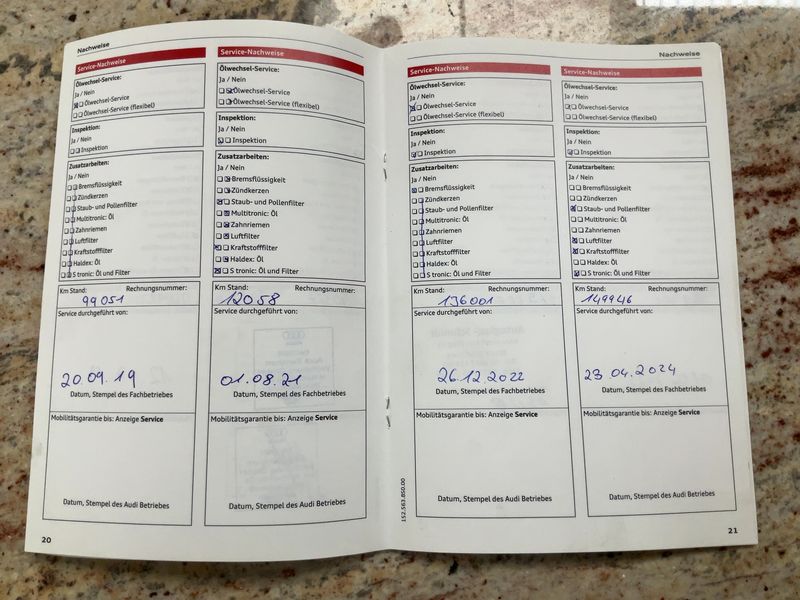 Nachweise
Service-Nachweise
Ölwechsel-Service:
Ja / Nein
Ölwechsel-Service
Ölwechsel-Service (flexibel)
Inspektion:
Ja / Nein
Inspektion
Zusatzarbeiten:
Ja / Nein
Bremsflüssigkeit
Zündkerzen
Staub- und Pollenfilter
Multitronic: Öl
Zahnriemen
Luftfilter
Kraftstofffilter
Haldex: Öl
S tronic: Öl und Filter
Km Stand: Rechnungsnummer:
99051
Service durchgeführt von:
20.09.19
Datum, Stempel des Fachbetriebes
Mobilitätsgarantie bis: Anzeige Service
Datum, Stempel des Audi Betriebes
20
Service-Nachweise
Ölwechsel-Service:
Ja / Nein
Ölwechsel-Service
Ölwechsel-Service (flexibel)
Inspektion:
Ja / Nein
Inspektion
Zusatzarbeiten:
Ja / Nein
Bremsflüssigkeit
Zündkerzen
Staub- und Pollenfilter
Multitronic: Öl
Zahnriemen
Luftfilter
Kraftstofffilter
Haldex: Öl
S tronic: Öl und Filter
Km Stand: Rechnungsnummer:
12058
Service durchgeführt von:
01.08.21
Datum, Stempel des Fachbetriebes
Mobilitätsgarantie bis: Anzeige Service
Datum, Stempel des Audi Betriebes
Nachweise
Service-Nachweise
Ölwechsel-Service:
Ja / Nein
Ölwechsel-Service
Ölwechsel-Service (flexibel)
Inspektion:
Ja / Nein
Inspektion
Zusatzarbeiten:
Ja / Nein
Bremsflüssigkeit
Zündkerzen
Staub- und Pollenfilter
Multitronic: Öl
Zahnriemen
Luftfilter
Kraftstofffilter
Haldex: Öl
S tronic: Öl und Filter
Km Stand: Rechnungsnummer:
136001
Service durchgeführt von:
26.12.2022
Datum, Stempel des Fachbetriebes
Mobilitätsgarantie bis: Anzeige Service
Datum, Stempel des Audi Betriebes
152.563.850.00
Service-Nachweise
Ölwechsel-Service:
Ja / Nein
Ölwechsel-Service
Ölwechsel-Service (flexibel)
Inspektion:
Ja / Nein
Inspektion
Zusatzarbeiten:
Ja / Nein
Bremsflüssigkeit
Zündkerzen
Staub- und Pollenfilter
Multitronic: Öl
Zahnriemen
Luftfilter
Kraftstofffilter
Haldex: Öl
S tronic: Öl und Filter
Km Stand: Rechnungsnummer:
149946
Service durchgeführt von:
23 04.2024
Datum, Stempel des Fachbetriebes
Mobilitätsgarantie bis: Anzeige Service
Datum, Stempel des Audi Betriebes
21